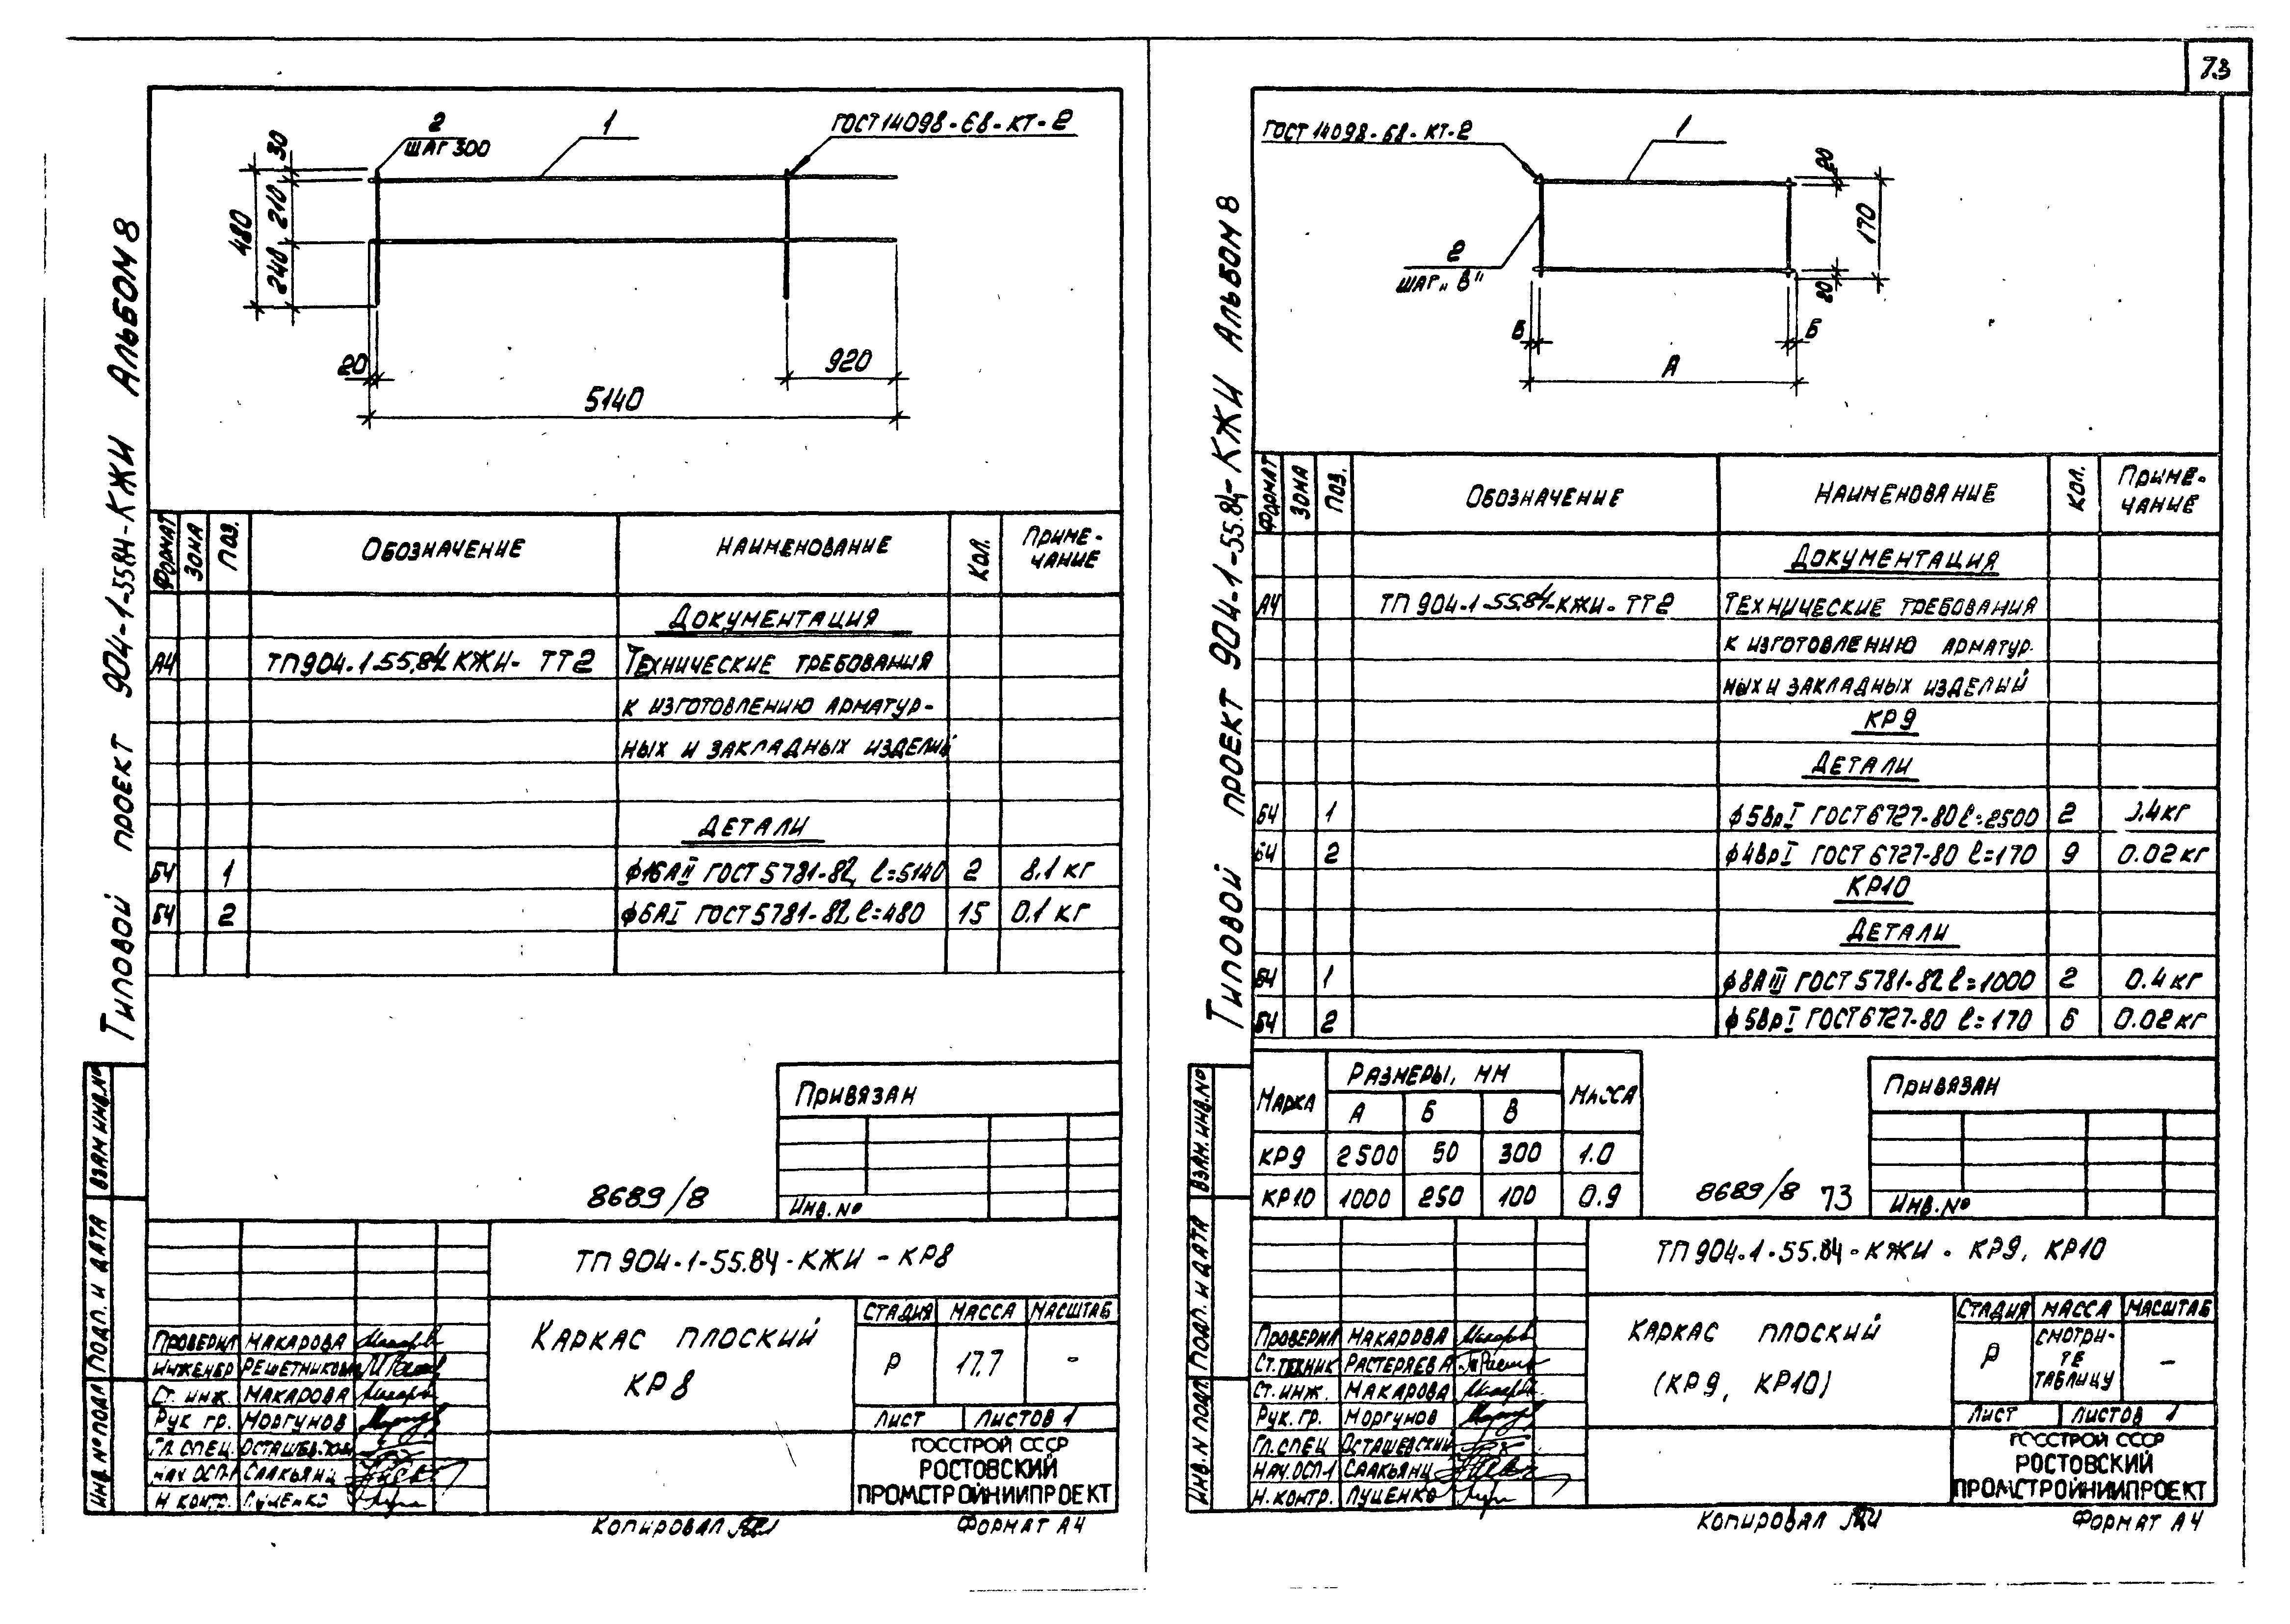 73
Типовой проект 904-1-55.84-КЖИ Альбом 8
2
шаг 300
1
ГОСТ 14098-68-КТ-2
30
210
240
480
20
920
5140
Формат
Зона
Поз.
Обозначение
Наименование
Кол.
Приме-
чание
Документация
А4 ТП 904-1-55.84 КЖИ- ТТ2 Технические требования
к изготовлению арматур-
ных и закладных изделий
Детали
Б4 1 ф16АII ГОСТ 5781-82, l=5140 2 8.1 кг
Б4 2 ф6АI ГОСТ 5781-82, l=480 15 0.1 кг
Привязан
Инв.№
8689/8
Взам.инв.№
Подп. и дата
Инв.№ подл
ТП 904-1-55.84-КЖИ-КР8
Каркас плоский
КР8
Стадия Масса Масштаб
Р 17.7 -
Лист Листов 1
ГОССТРОЙ СССР
РОСТОВСКИЙ
ПРОМСТРОЙНИИПРОЕКТ
Проверил Макарова
Инженер Решетникова
Ст. инж. Макарова
Рук гр. Моргунов
Гл. спец.
Нач. ОСП-1 Саакьянц
Н контр. Луценко
Копировал
Формат А4
Типовой проект 904-1-55.84-КЖИ Альбом 8
ГОСТ 14098-68-КТ-2
1
20
170
20
2
шаг „В"
Б
Б
А
Формат
Зона
Поз.
Обозначение
Наименование
Кол.
Приме-
чание
Документация
А4 ТП 904-1-55.84-КЖИ-ТТ2 Технические требования
к изготовлению арматур-
ных и закладных изделий
КР9
Детали
Б4 1 ф5ВрI ГОСТ 6727-80 l=2500 2 .4 кг
Б4 2 ф4ВрI ГОСТ 6727-80 l=170 9 0.02 кг
КР10
Детали
Б4 1 ф8АIII ГОСТ 5781-82 l=1000 2 0.4 кг
Б4 2 ф5ВрI ГОСТ 6727-80 l=170 6 0.02 кг
Марка Размеры, мм Масса
А Б В
КР9 2500 50 300 1.0
КР10 1000 250 100 0.9
8689/8 73
Привязан
Инв.№
Взам.инв.№
Подп. и дата
Инв.N подл.
ТП 904-1-55.84-КЖИ-КР9, КР10
Каркас плоский
(КР9, КР10)
Стадия Масса Масштаб
Р Смотри-
те
таблицу
-
Лист Листов 1
ГОССТРОЙ СССР
РОСТОВСКИЙ
ПРОМСТРОЙНИИПРОЕКТ
Проверил Макарова
Ст.техник Растеряева
Ст.инж. Макарова
Рук.гр. Моргунов
Гл.спец Осташевский
Нач.ОСП-1 Саакьянц
Н.контр. Луценко
Копировал
Формат А4